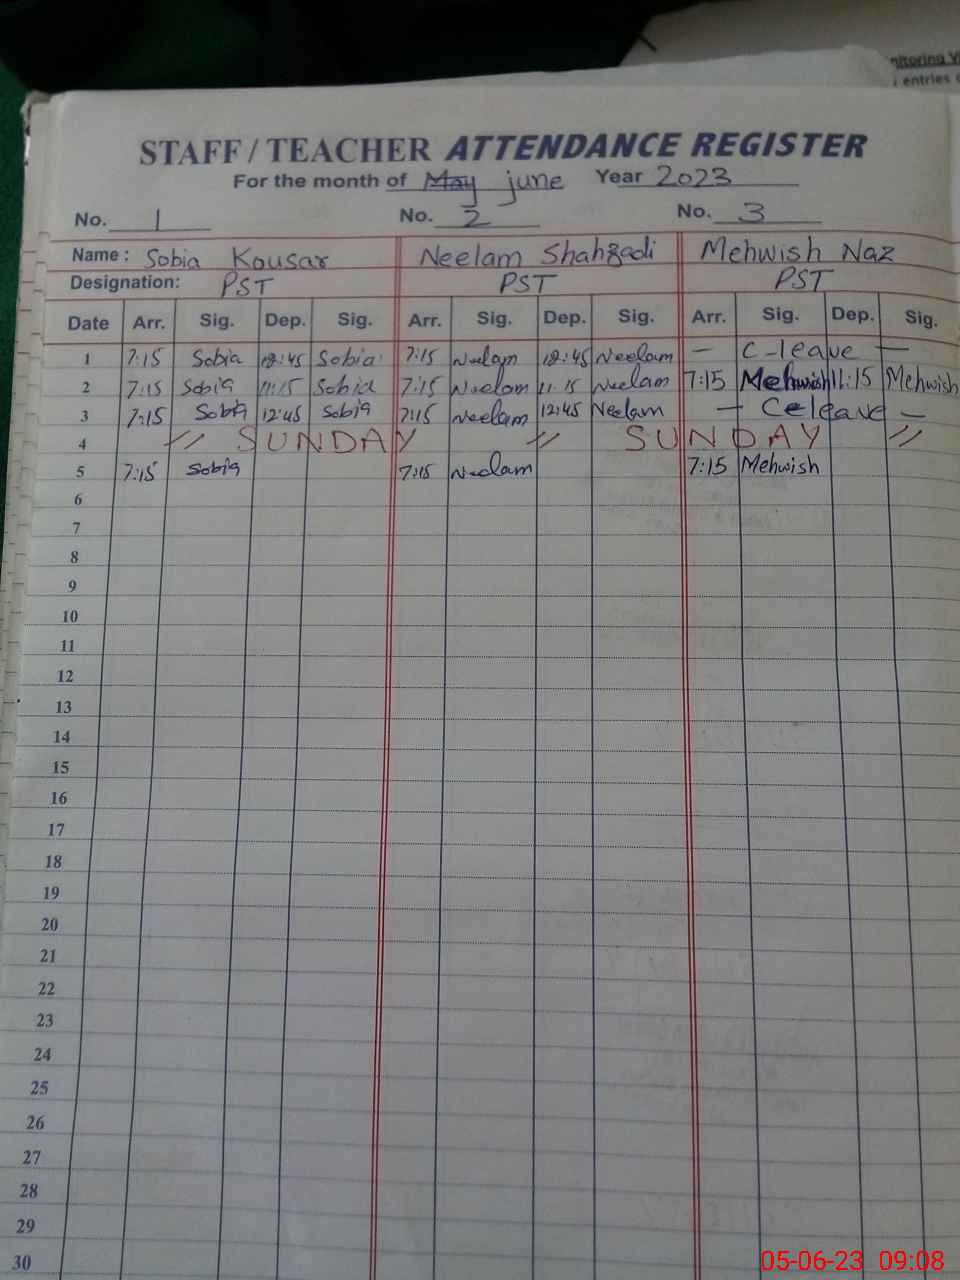 nitoring V
entries
STAFF / TEACHER ATTENDANCE REGISTER
For the month of May june Year 2023
No. 1 No. 2 No. 3
Name : Sobia Kousar Neelam Shahzadi Mehwish Naz
Designation: PST PST PST
Date Arr. Sig. Dep. Sig. Arr. Sig. Dep. Sig. Arr. Sig. Dep. Sig.
1 7:15 Sobia 12:45 Sobia 7:15 Neelam 12:45 Neelam — C-leave —
2 7:15 Sobia 11:15 Sobia 7:15 Neelam 11:15 Neelam 7:15 Mehwish 11:15 Mehwish
3 7:15 Sobia 12:45 Sobia 7:15 Neelam 12:45 Neelam — Celeave —
4 // SUNDAY // SUNDAY //
5 7:15 Sobia 7:15 Neelam 7:15 Mehwish
6
7
8
9
10
11
12
13
14
15
16
17
18
19
20
21
22
23
24
25
26
27
28
29
30
05-06-23 09:08